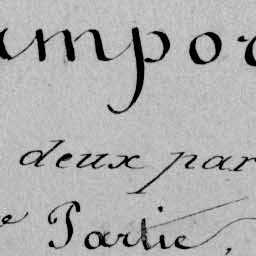 mpor
deux par
e Partie,